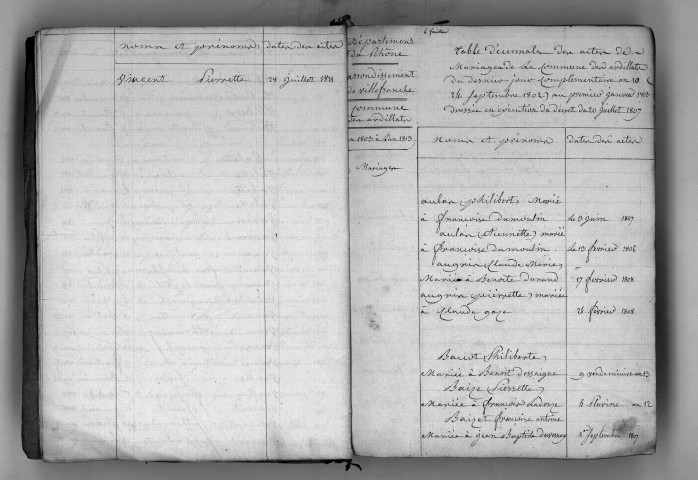 noms et prénoms dates des actes
Vincent Pierrette 28 Juillet 1811
Département
du Rhône
arrondissement
de villefranche
commune
des ardillats
an 1803 à l'an 1813
Mariages
6 feuilles
Table Décennale des actes de
Mariages de La Commune des ardillats
du dernier jour complémentaire an 10 (
24 septembre 1802) au premier janvier 1813
Dressée en exécution du décret du 20 Juillet 1807
noms et prénoms dates des actes
aulas (Philibert) Marié
à françoise dumoulin le 9 juin 1807
aulas (Etiennette) mariée
à françoise dumoulin le 13 fevrier 1806
augrin (Claude Marie)
Marié à Benoite Durand 17 fevrier 1808
augrin (pierrette) mariée
à Claude gaze 24 fevrier 1808
Philiberte,
Mariée à Benoît dessaigne 9 vendemiaire an 13
Baize Pierrette,
Mariée à françois 4 Pluviose an 12
Baizet françoise antoine
Mariée à jean Baptiste Septembre 1807